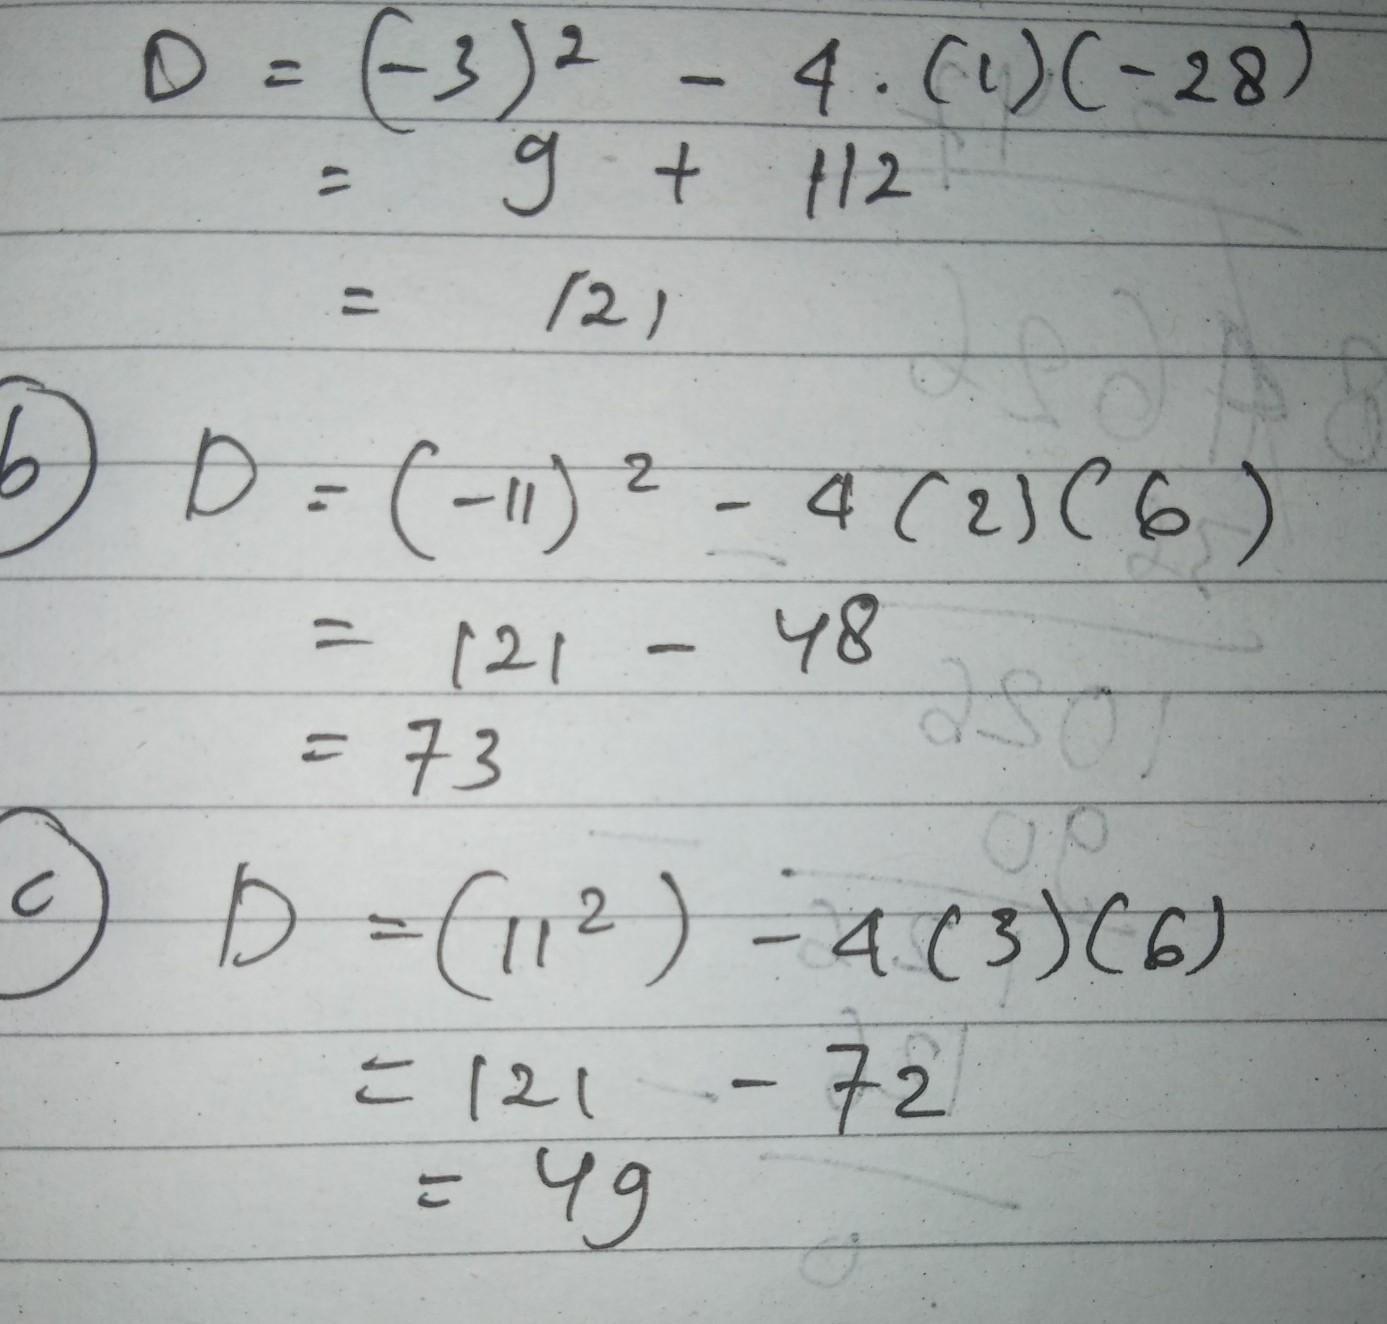 D = (-3)² - 4 . (1)(-28)
= 9 + 112
= 121
b) D = (-11)² - 4 (2)(6)
= 121 - 48
= 73
c) D = (11²) - 4 (3)(6)
= 121 - 72
= 49